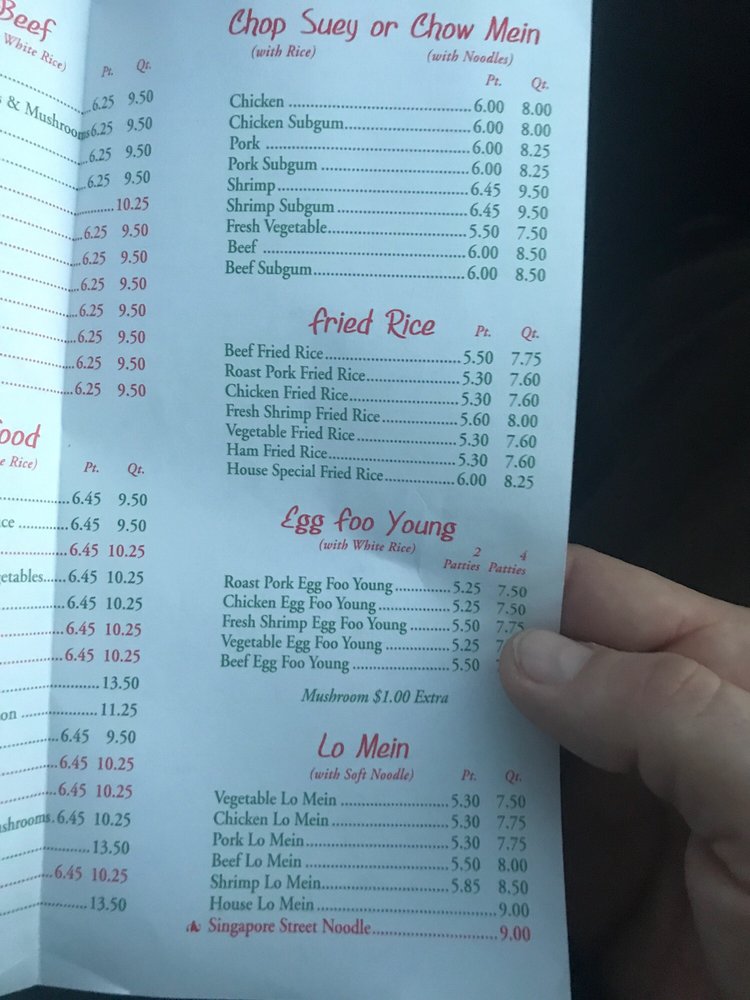 Beef
White Rice)
Pt. Qt.
6.25 9.50
& Mushrooms 6.25 9.50
6.25 9.50
6.25 9.50
10.25
6.25 9.50
6.25 9.50
6.25 9.50
6.25 9.50
6.25 9.50
6.25 9.50
6.25 9.50
ood
e Rice)
Pt. Qt.
6.45 9.50
ce 6.45 9.50
6.45 10.25
etables 6.45 10.25
6.45 10.25
6.45 10.25
6.45 10.25
13.50
on 11.25
6.45 9.50
6.45 10.25
6.45 10.25
shrooms. 6.45 10.25
13.50
6.45 10.25
13.50
Chop Suey or Chow Mein
(with Rice) (with Noodles)
Pt. Qt.
Chicken 6.00 8.00
Chicken Subgum 6.00 8.00
Pork 6.00 8.25
Pork Subgum 6.00 8.25
Shrimp 6.45 9.50
Shrimp Subgum 6.45 9.50
Fresh Vegetable 5.50 7.50
Beef 6.00 8.50
Beef Subgum 6.00 8.50
Fried Rice Pt. Qt.
Beef Fried Rice 5.50 7.75
Roast Pork Fried Rice 5.30 7.60
Chicken Fried Rice 5.30 7.60
Fresh Shrimp Fried Rice 5.60 8.00
Vegetable Fried Rice 5.30 7.60
Ham Fried Rice 5.30 7.60
House Special Fried Rice 6.00 8.25
Egg Foo Young
(with White Rice)
2 4
Patties Patties
Roast Pork Egg Foo Young 5.25 7.50
Chicken Egg Foo Young 5.25 7.50
Fresh Shrimp Egg Foo Young 5.50 7.75
Vegetable Egg Foo Young 5.25 7
Beef Egg Foo Young 5.50
Mushroom $1.00 Extra
Lo Mein
(with Soft Noodle) Pt. Qt.
Vegetable Lo Mein 5.30 7.50
Chicken Lo Mein 5.30 7.75
Pork Lo Mein 5.30 7.75
Beef Lo Mein 5.50 8.00
Shrimp Lo Mein 5.85 8.50
House Lo Mein 9.00
Singapore Street Noodle 9.00